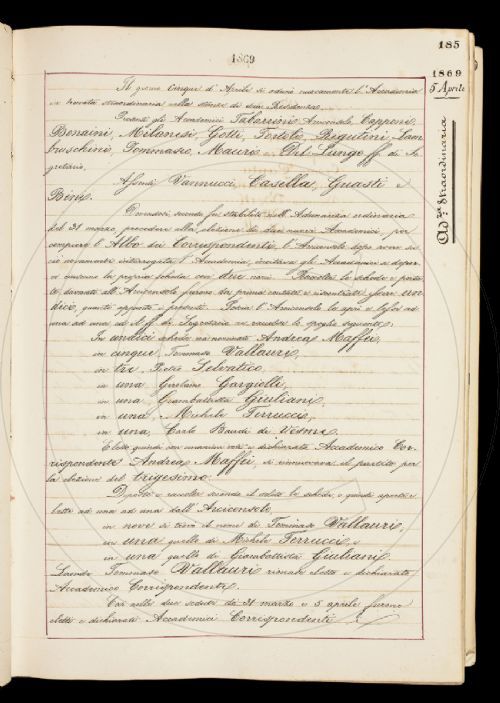 185
1869
1869
5 Aprile
Ad.za straordinaria
Il giorno cinque d'Aprile si adunò nuovamente l'Accademia
in tornata straordinaria nelle stanze di sua Residenza.
Presenti gli Accademici Tabarrini Arciconsolo, Capponi,
Bonaini, Milanesi, Gotti, Tortoli, Rigutini, Lam-
bruschini, Tommaseo, Mauri e Del Lungo ff. di Se-
gretario.
Assenti Vannucci, Casella, Guasti e
Bini.
Dovendosi secondo fu stabilito nell'Adunanza ordinaria
del 31 marzo, procedere alla elezione di due nuovi Accademici, per
compiere l'Albo dei Corrispondenti, l'Arciconsolo dopo aver su
ciò nuovamente interrogata l'Accademia, invitava gli Accademici a depor-
re nell'urna la propria scheda con due nomi. Raccolte le schede e porta-
te davanti all'Arciconsolo furono da prima contate e riscontrate essere un-
dici, quanti appunto i presenti. Poscia l'Arciconsolo le aprì e lesse ad
una ad una al ff. di Segretario
In undici schede era nominato Andrea Maffei,
in cinque, Tommaso Vallauri,
in tre, Pietro Selvatico,
in una Girolamo Gargiolli,
in una, Giambattista Giuliani,
in una, Michele Ferrucci,
in una, Carlo Baudi di Vesme.
Eletto quindi con unanimi voti e dichiarato Accademico Cor-
rispondente Andrea Maffei, si rinnovava il partito per
la elezione del trigesimo.
Deposte e raccolte secondo il solito le schede, e quindi aperte e
lette ad una ad una dall'Arciconsolo,
in nove si trovò il nome di Tommaso Vallauri,
in una quello di Michele Ferrucci, e
in una quello di Giambattista Giuliani.
Laonde Tommaso Vallauri rimase eletto e dichiarato
Accademico Corrispondente.
Così nelle due sedute de' 31 marzo e 5 aprile furono
eletti e dichiarati Accademici Corrispondenti